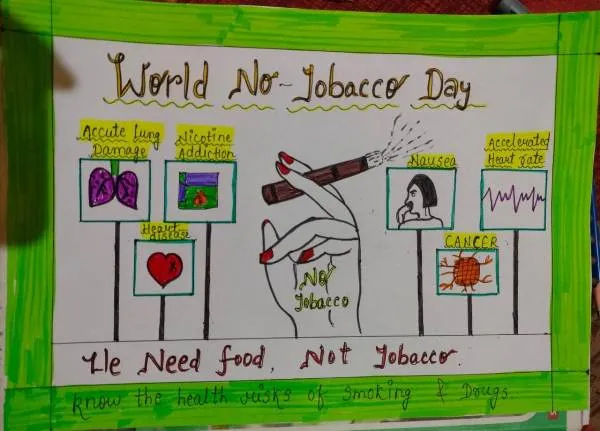 World No-Tobacco Day
Accute Lung
Damage
Nicotine
Addiction
Heart
disease
Nausea
Accelerated
Heart rate
CANCER
No
Tobacco
We Need food, Not Tobacco.
Know the health risks of smoking & Drugs.